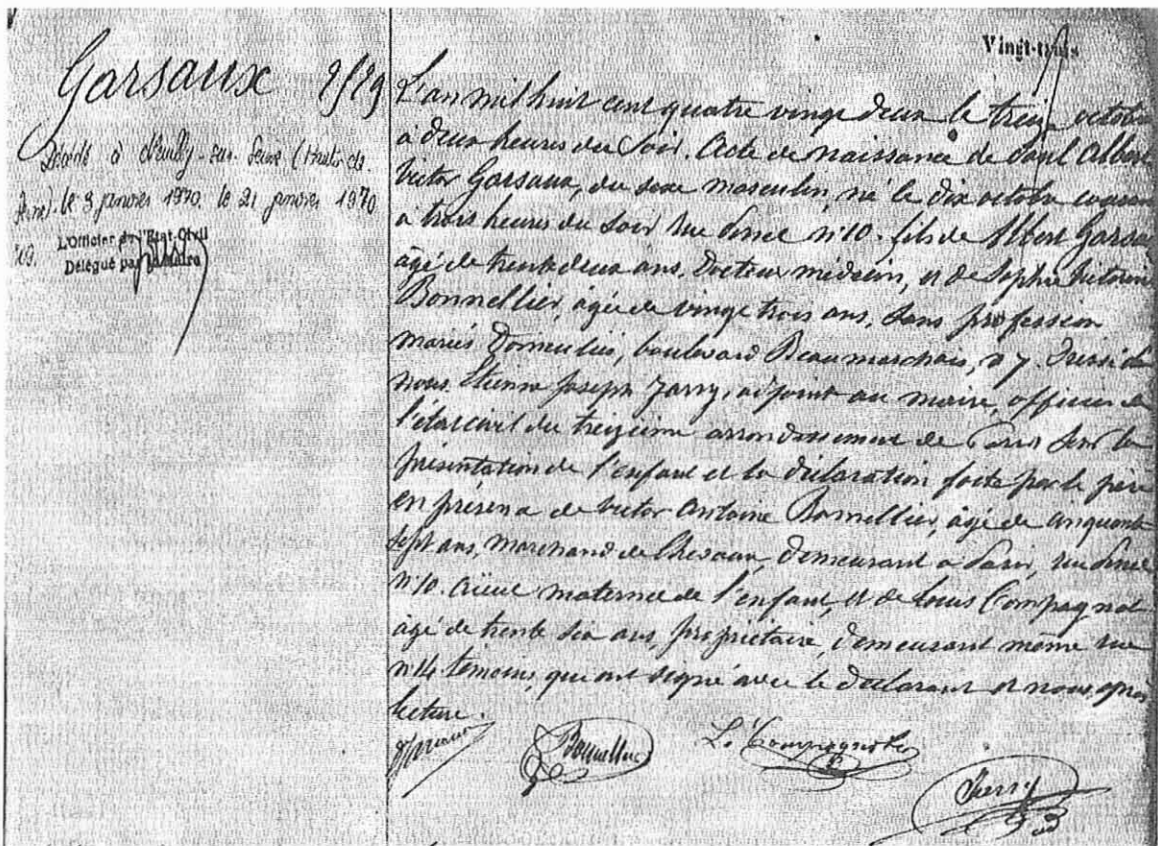 Vingt-trois
Garsaux 2529
Décédé à Neuilly-sur-Seine (Hauts-de-
Seine) le 3 janvier 1970. le 21 janvier 1970
L'Officier de l'Etat Civil
Délégué par le Maire
L'an mil huit cent quatre vingt deux le treize octobre
à deux heures du Soir. Acte de naissance de Paul Albert
Victor Garsaux, du sexe masculin, né le dix octobre courant
à trois heures du soir rue n° 10. fils de Albert Garsaux
âgé de trente deux ans, Docteur médecin, et de Sophie Victorine
Bonnellier, âgée de vingt trois ans, sans profession
mariés Domiciliés, boulevard Beaumarchais, n° 7. Dressé par
nous Etienne Joseph Jarry, adjoint au maire, officier de
l'état civil du treizième arrondissement de Paris sur la
présentation de l'enfant et la déclaration faite par le père
en présence de Victor Antoine Bonnellier, âgé de cinquante
sept ans, marchand de chevaux, demeurant à Paris, rue
n° 10. aïeul maternel de l'enfant, et de Louis Compagnol
âgé de trente six ans, propriétaire, demeurant même rue
n° 14 témoins, qui ont signé avec le déclarant et nous après
lecture.
Bonnellier
L. Compagnol
Jarry